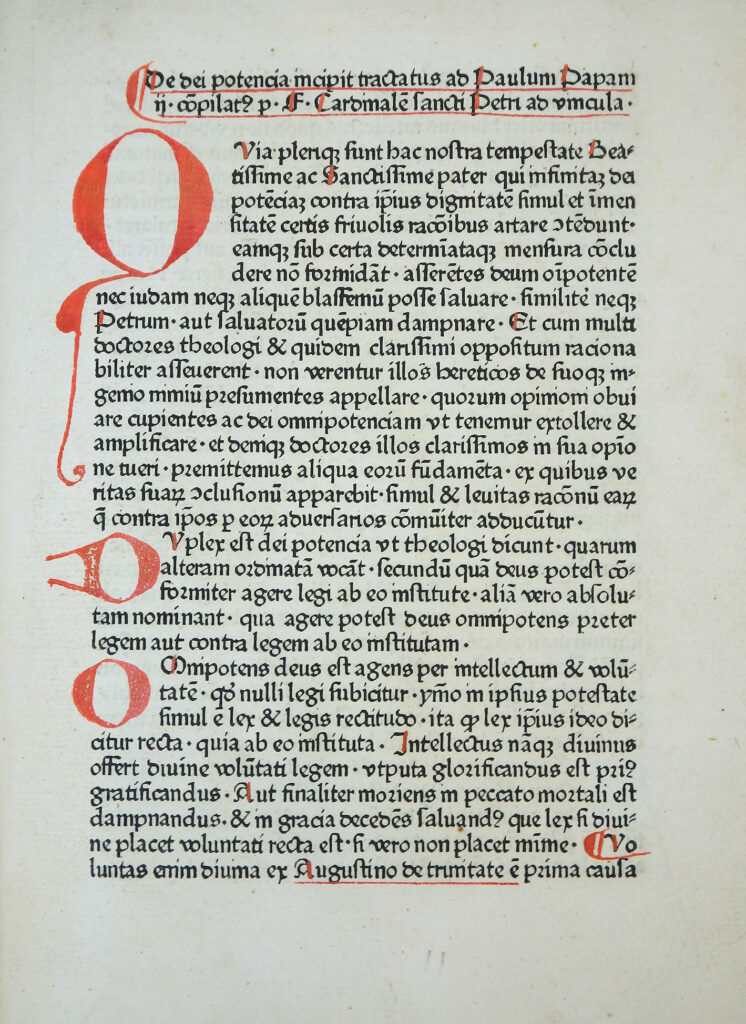 De dei potencia incipit tractatus ad Paulum Papam
ij · cōpilatꝰ p · F · Cardinalē sancti Petri ad vincula ·
QVia pleriqꝫ sunt hac nostra tempestate Bea⸗
tissime ac Sanctissime pater qui infinitaꝫ dei
potēciaꝫ contra ip̄ius dignitatē simul et īmen
sitatē certis friuolis racōibus artare ↄtēdunt·
eamqꝫ sub certa determīataqꝫ mensura cōclu
dere nō formidāt · asserētes deum oīpotentē
nec iudam neqꝫ aliquē blasfemū posse saluare · similitē neqꝫ
Petrum · aut saluatorū quēpiam dampnare · Et cum multi
doctores theologi & quidem clarissimi oppositum raciona
biliter asseuerent · non verentur illos hereticos de suoqꝫ in⸗
genio nimiū presumentes appellare · quorum opinioni obui
are cupientes ac dei omnipotenciam vt tenemur extollere &
amplificare · et deniqꝫ doctores illos clarissimos in sua opīo
ne tueri · premittemus aliqua eorū fūdamēta · ex quibus ve
ritas suaꝝ ↄclusionū apparebit · simul & leuitas racōnū eaꝝ
q̄ contra ip̄os p eoꝝ aduersarios cōmūiter adducūtur ·
DVplex est dei potencia vt theologi dicunt · quarum
alteram ordinatā vocāt · secundū quā deus potest cō⸗
formiter agere legi ab eo institute · aliā vero absolu⸗
tam nominant · qua agere potest deus omnipotens preter
legem aut contra legem ab eo institutam ·
OMnipotens deus est agens per intellectum & volū⸗
tatē · qd̄ nulli legi subicitur · ymō in ipsius potestate
simul ē lex & legis rectitudo · ita ꝙ lex ip̄ius ideo di⸗
citur recta · quia ab eo instituta · Intellectus nāqꝫ diuinus
offert diuine volūtati legem · vtputa glorificandus est priꝰ
gratificandus · Aut finaliter moriens in peccato mortali est
dampnandus · & in gracia decedēs saluandꝰ que lex si diui⸗
ne placet voluntati recta est · si vero non placet mīme · Vo
luntas enim diuina ex Augustino de trinitate ē prima causa